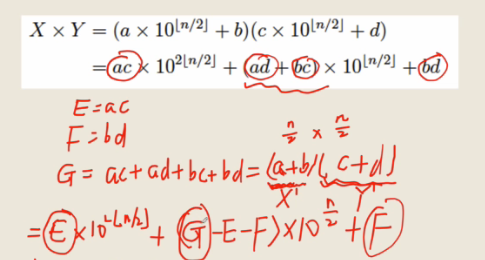 X × Y = (a × 10^⌊n/2⌋ + b)(c × 10^⌊n/2⌋ + d)
= ac × 10^2⌊n/2⌋ + (ad + bc) × 10^⌊n/2⌋ + bd
E = ac
F = bd
n/2 × n/2
G = ac + ad + bc + bd = (a+b)(c+d)
X' Y'
= E × 10^2⌊n/2⌋ + (G - E - F) × 10^n/2 + F